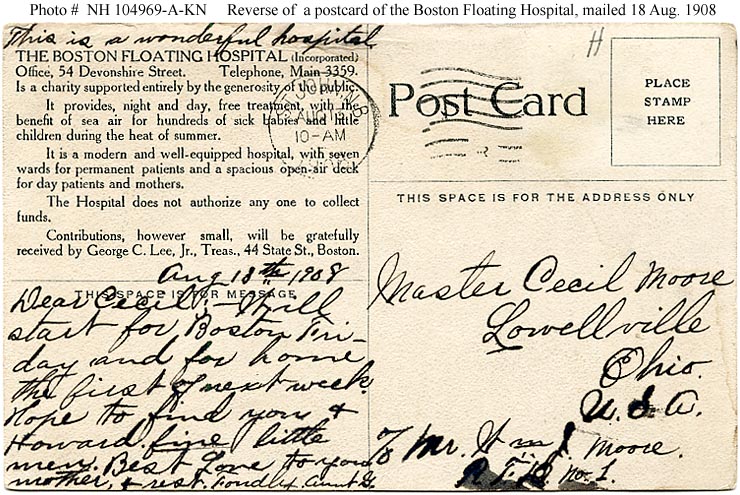 Photo # NH 104969-A-KN Reverse of a postcard of the Boston Floating Hospital, mailed 18 Aug. 1908
This is a wonderful hospital
THE BOSTON FLOATING HOSPITAL (Incorporated)
Office, 54 Devonshire Street. Telephone, Main 3359.
Is a charity supported entirely by the generosity of the public.
It provides, night and day, free treatment, with the
benefit of sea air for hundreds of sick babies and little
children during the heat of summer.
It is a modern and well-equipped hospital, with seven
wards for permanent patients and a spacious open-air deck
for day patients and mothers.
The Hospital does not authorize any one to collect
funds.
Contributions, however small, will be gratefully
received by George C. Lee, Jr., Treas., 44 State St., Boston.
THIS SPACE IS FOR MESSAGE
Aug 18th 1908
Dear Cecil:- I will
start for Boston Fri-
day and for home
the first of next week.
Hope to find you &
Howard fine little
men. Best Love to you
mother, & rest. Fondly, Aunt G.
ST. JOHN, N.B.
10-AM
H
Post Card
PLACE
STAMP
HERE
THIS SPACE IS FOR THE ADDRESS ONLY
Master Cecil Moore
Lowellville
Ohio.
U.S.A.
c/o Mr. Wm J Moore.
R.F.D. no. 1.